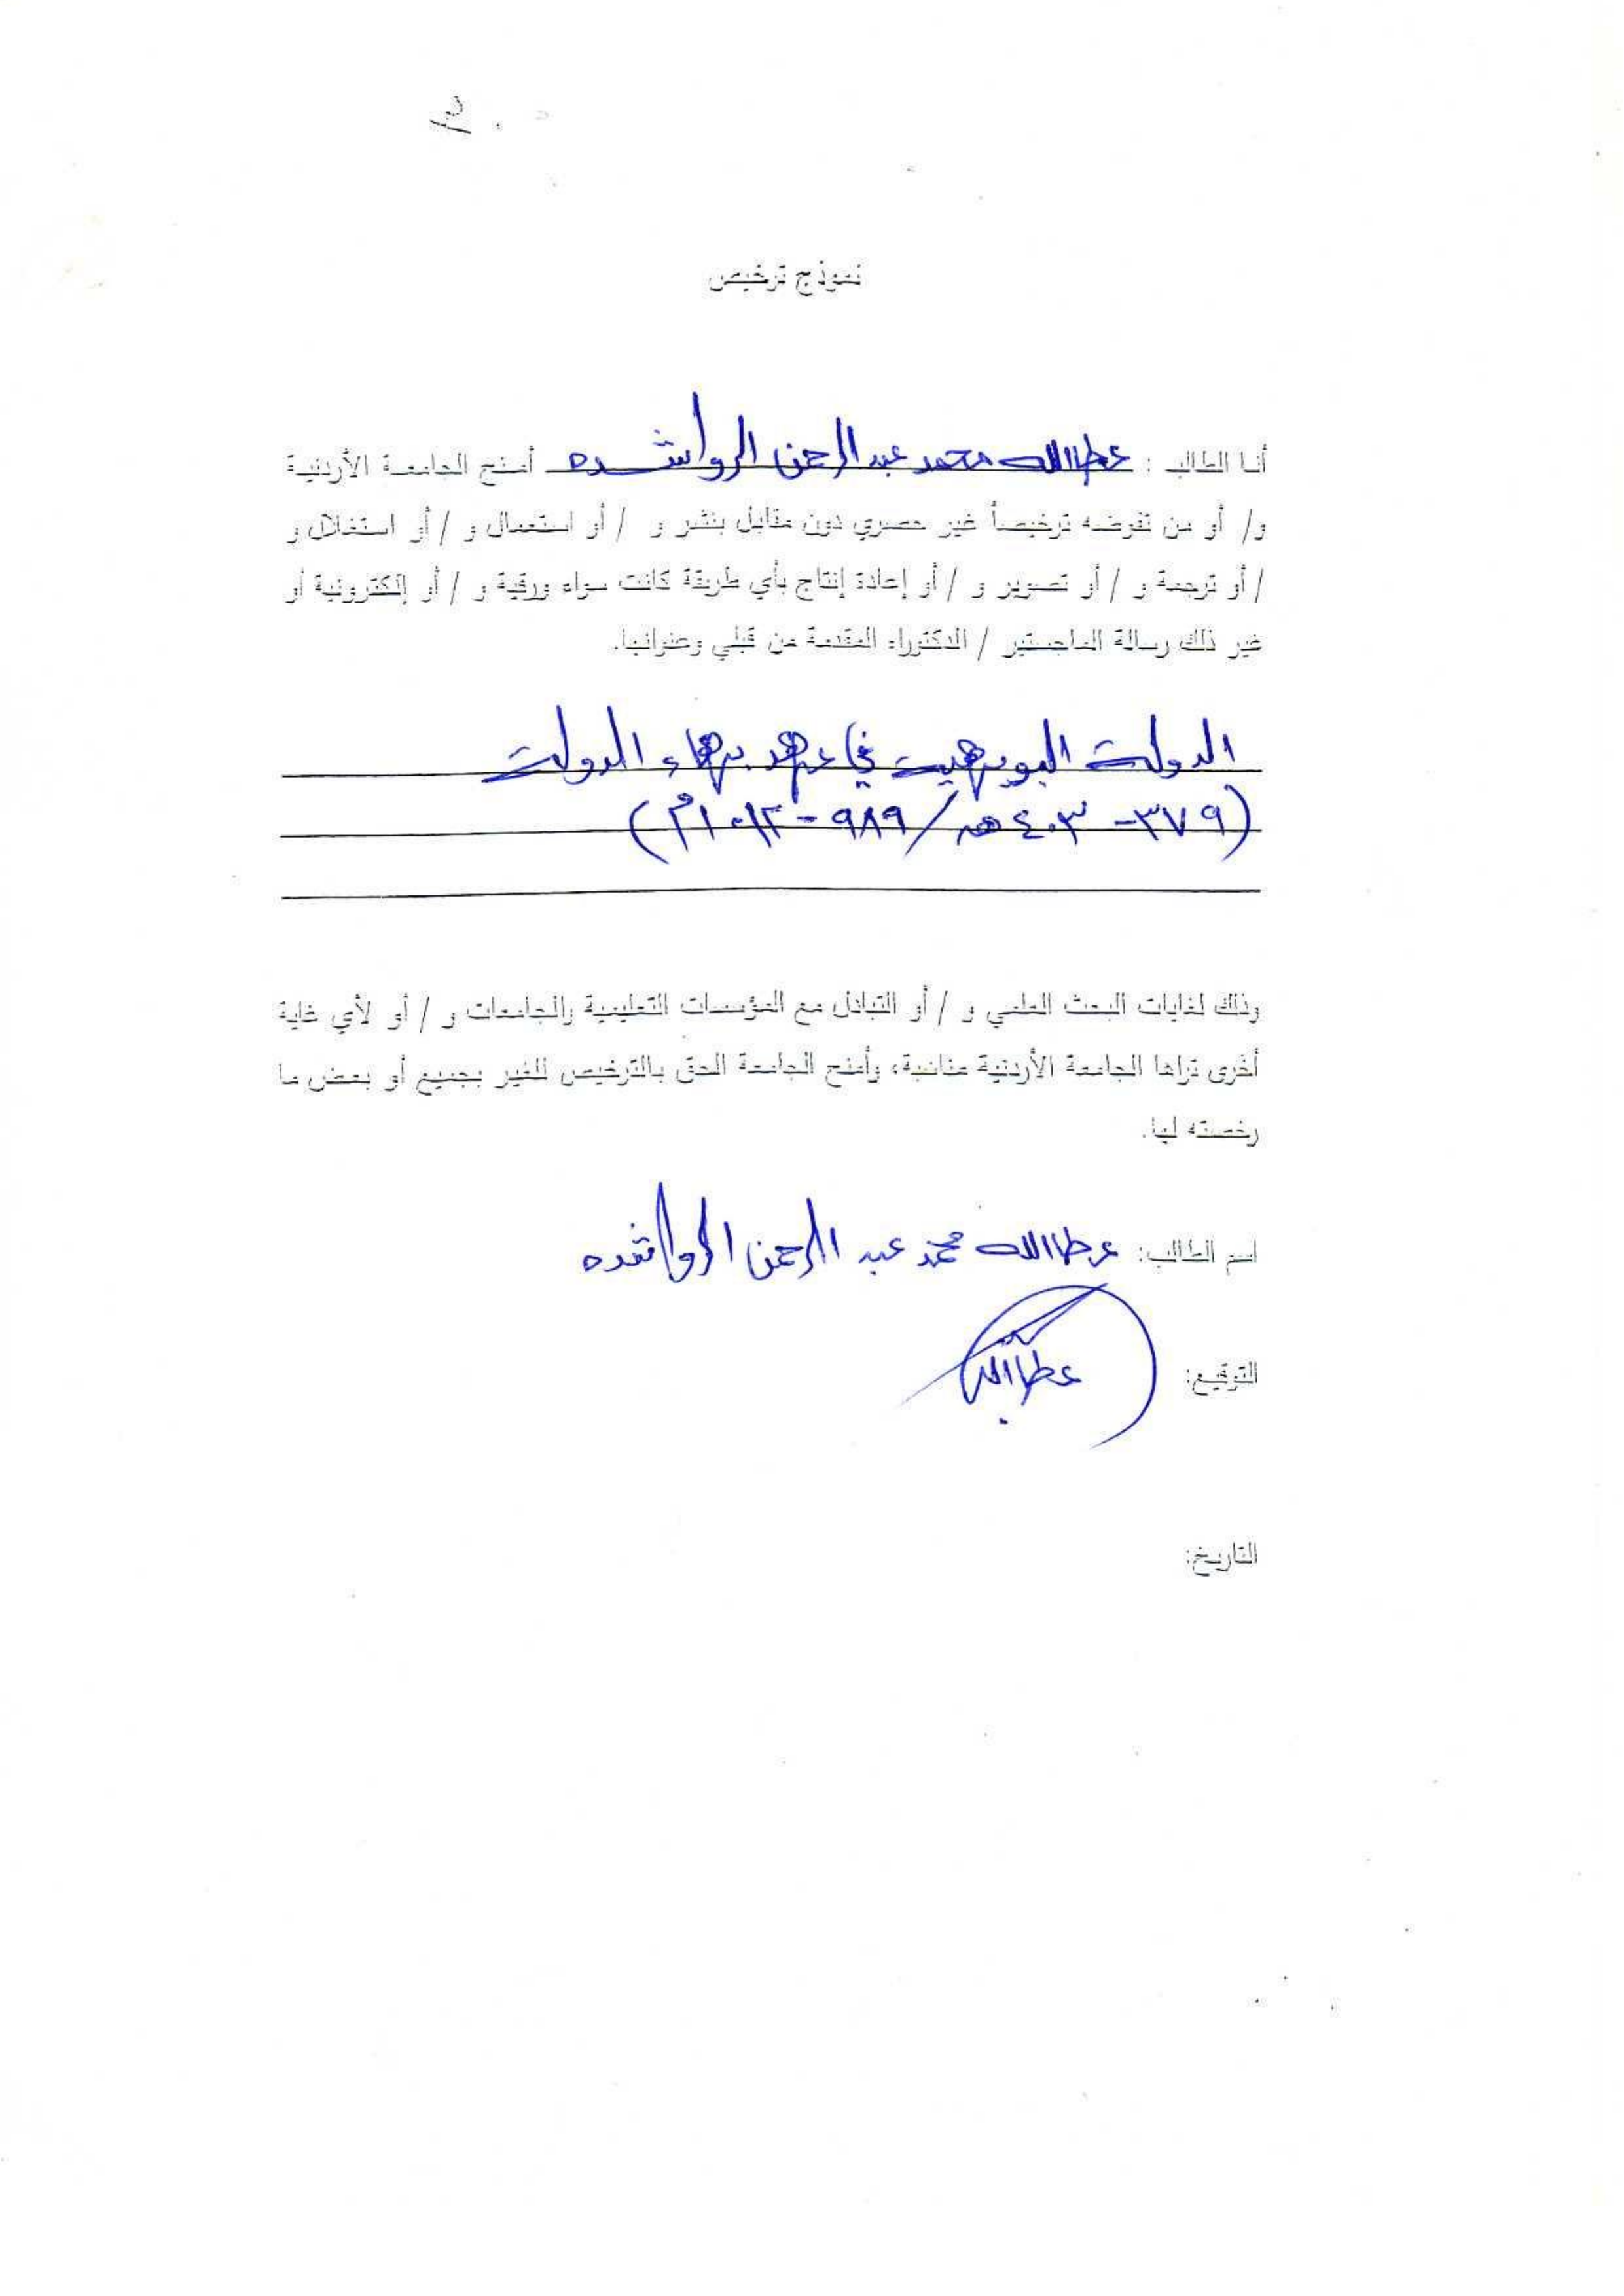 نموذج ترخيص
أنا الطالب : عطاالله محمد عبد الرحمن الرواشده أمنح الجامعة الأردنية
و/ أو من تفوضه ترخيصاً غير حصري دون مقابل بنشر و / أو استعمال و / أو استغلال و
/ أو ترجمة و / أو تصوير و / أو إعادة إنتاج بأي طريقة كانت سواء ورقية و / أو إلكترونية أو
غير ذلك رسالة الماجستير / الدكتوراه المقدمة من قبلي وعنوانها.
الدولة البويهية في عهد بهاء الدولة
(٣٧٩- ٤٠٣هـ/ ٩٨٩-١٠١٢م)
وذلك لغايات البحث العلمي و / أو التبادل مع المؤسسات التعليمية والجامعات و / أو لأي غاية
أخرى تراها الجامعة الأردنية مناسبة، وأمنح الجامعة الحق بالترخيص للغير بجميع أو بعض ما
رخصته لها.
اسم الطالب: عطاالله محمد عبد الرحمن الرواشده
التوقيع: عطاالله
التاريخ: